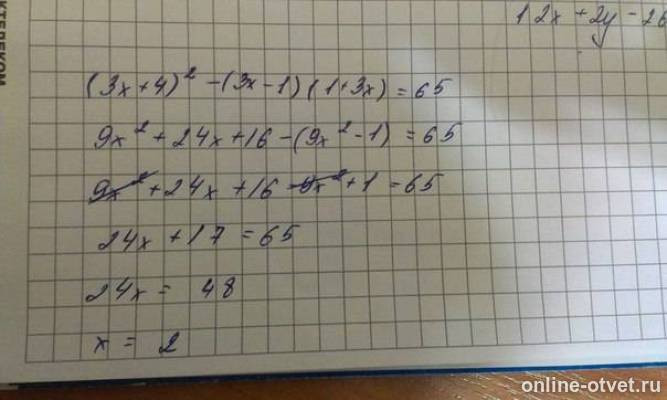 12x + 2y - 26
(3x+4)² - (3x-1)(1+3x) = 65
9x² + 24x + 16 - (9x² - 1) = 65
9x² + 24x + 16 - 9x² + 1 = 65
24x + 17 = 65
24x = 48
x = 2
online-otvet.ru